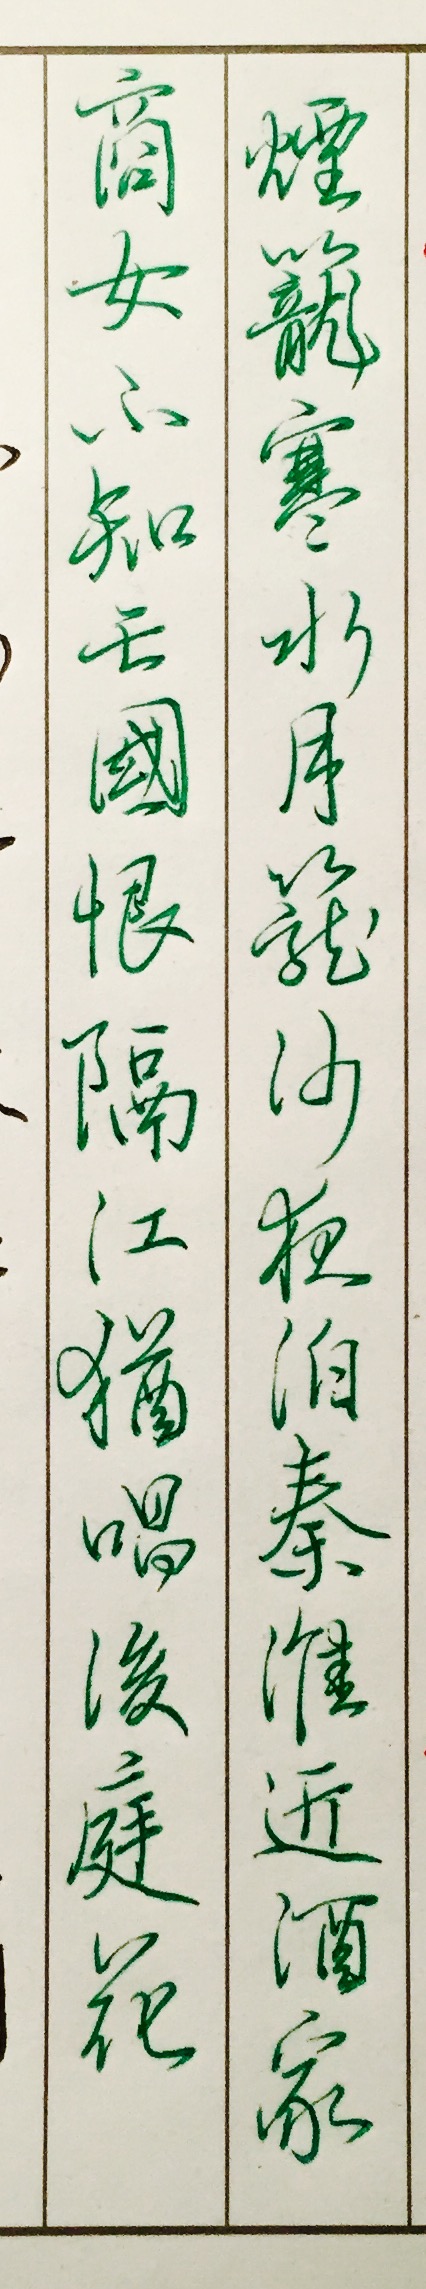 煙籠寒水月籠沙夜泊秦淮近酒家
商女不知亡國恨隔江猶唱後庭花